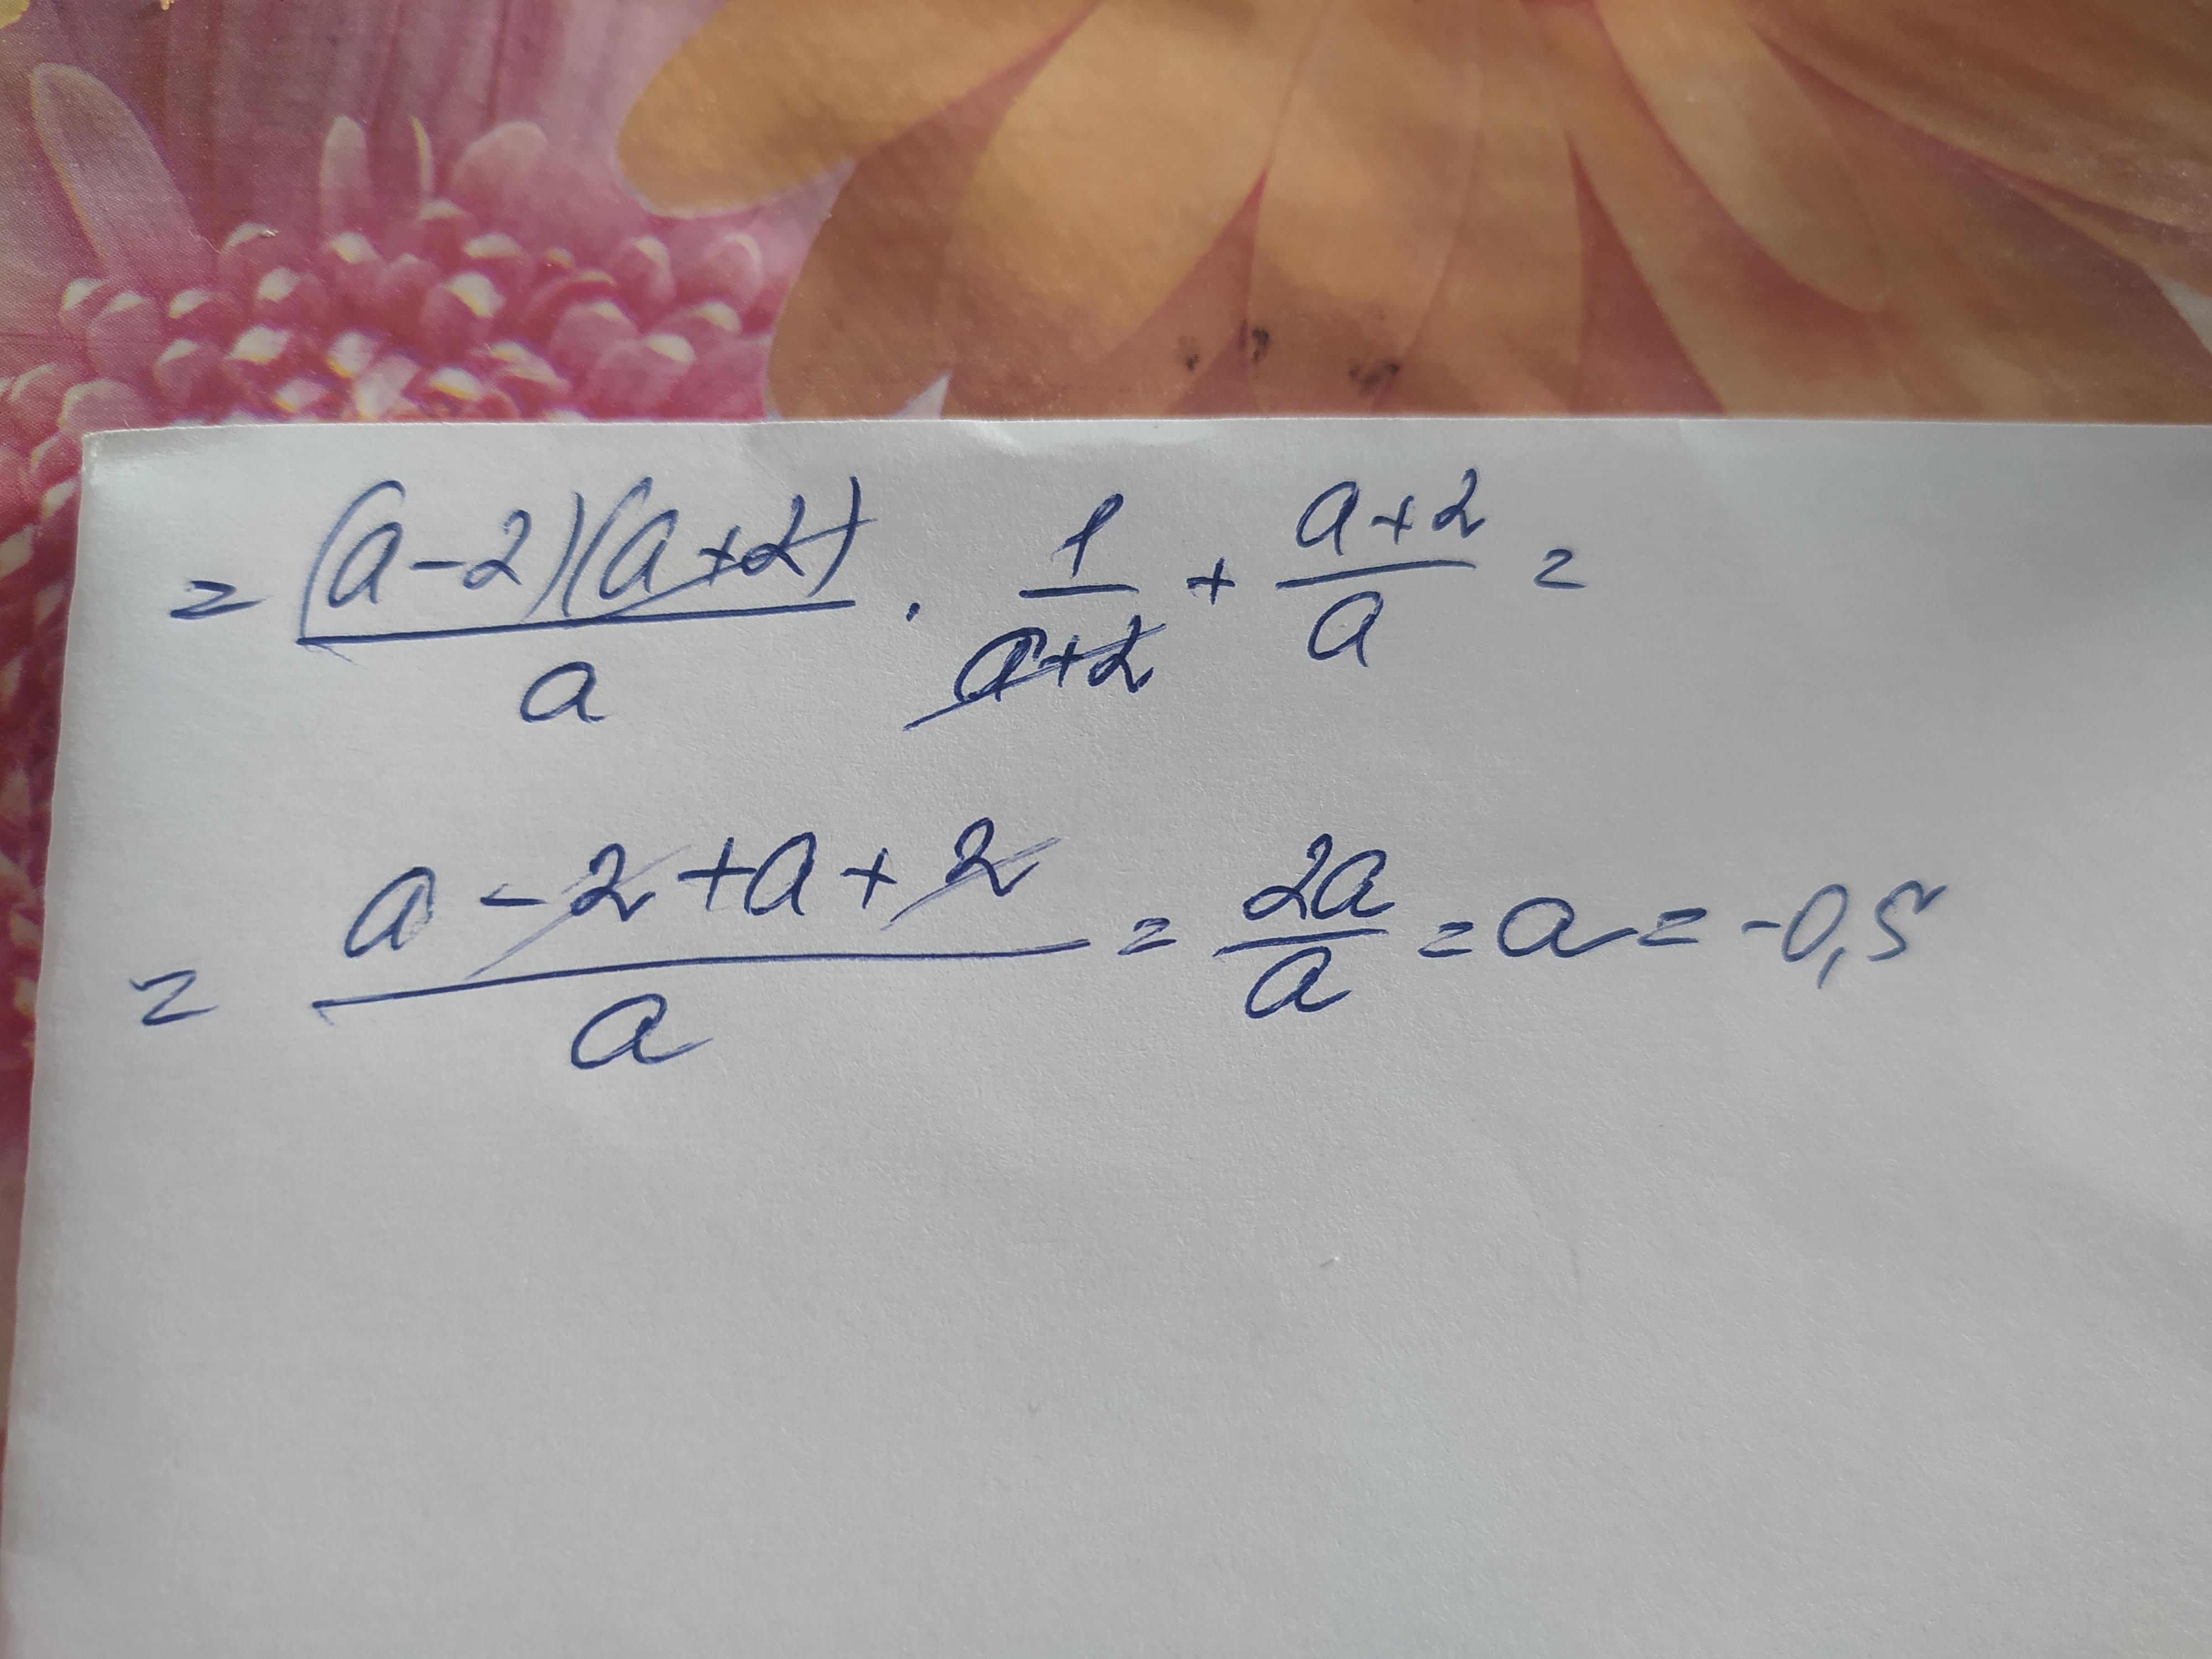 = (a-2)(a+2)/a · 1/(a+2) + (a+2)/a =
= (a-2+a+2)/a = 2a/a = a = -0,5